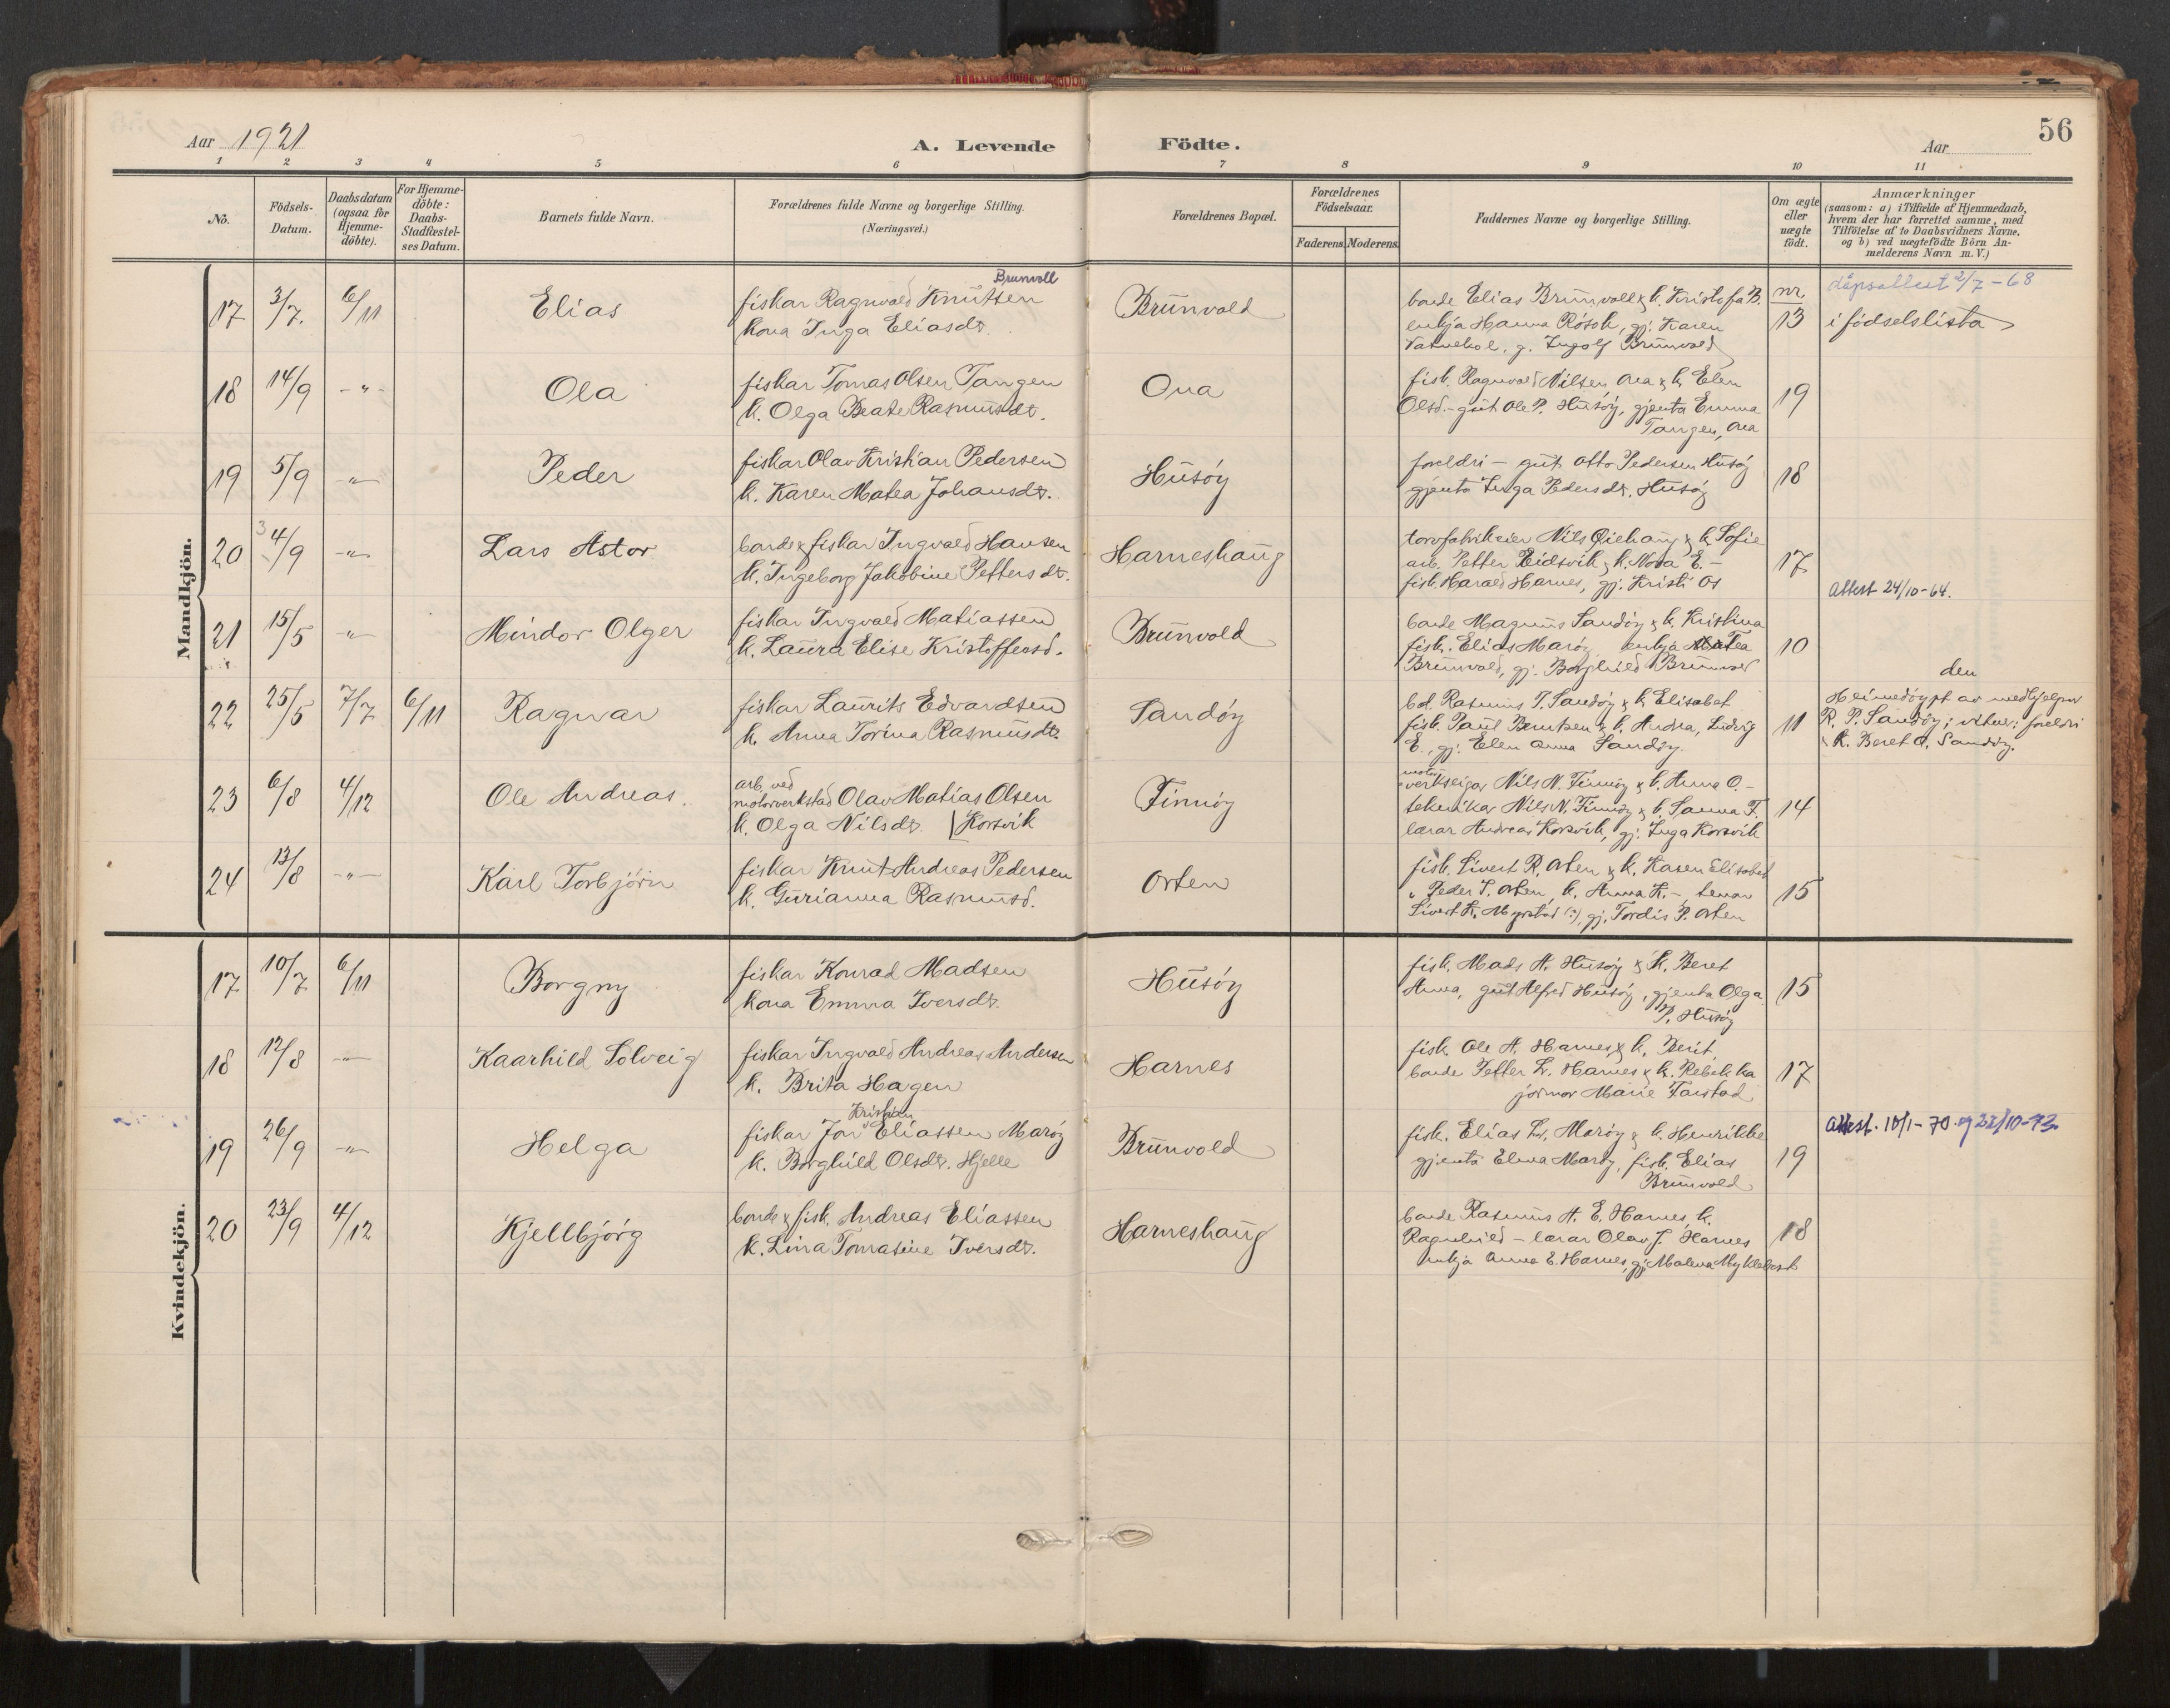 56
Aar 1921
A. Levende Födte.
Aar
1 2 3 4 5 6 7 8 9 10 11
No.
Födsels-Datum.
Daabsdatum (ogsaa for Hjemme-döbte).
For Hjemme-döbte: Daabs-Stadfæstel-ses Datum.
Barnets fulde Navn.
Forældrenes fulde Navne og borgerlige Stilling.
(Næringsvei.)
Forældrenes Bopæl.
Forældrenes Födselsaar.
Faderens. Moderens.
Faddernes Navne og borgerlige Stilling.
Om ægte eller uægte födt.
Anmærkninger
(saasom: a) i Tilfælde af Hjemmedaab,
hvem der har forrettet samme, med
Tilföielse af to Daabsvidners Navne,
og b) ved uægtefödte Börn An-
melderens Navn m. V.)
Mandkjön.
Brunvoll
17 3/7. 6/11 Elias fiskar Ragnvald Knutsen
kona Inga Eliasdr.
Brunvold
bonde Elias Brunvoll & k. Kristofa B.
enkja Hanna Rösok, gj. Karen
g. Ingolf Brunvold
nr. 13
dåpsattest 2/7-68
i födselslista
18 14/9 -"- Ola fiskar Tomas Olsen Tangen
k. Olga Beate Rasmusdr.
Ona
fisk. Ragnvald Nilsen Ona & k. Elen
Olsd. - gut Ole P. Husöy, gjenta Emma
Tangen, Ona
19
19 5/9 -"- Peder fiskar Olav Kristian Pedersen
k. Karen Matea Johansdr.
Husöy
foreldri - gut Otto Pedersen Husöy
gjenta Inga Pedersdr. Husöy
18
20 3 4/9 -"- Lars Astor bonde & fiskar Ingvald Hansen
k. Ingeborg Jakobine Pettersdr.
Harneshaug
torvfabrikeier Nils Qiehaug & k. Sofie
arb. Petter Eidsvik & k. Nora E. -
fisk. Harald Harnes, gj. Kristi Os
17
Attest 24/10-64.
21 15/5 -"- Mindor Olger fiskar Ingvald Matiassen
k. Laura Elise Kristoffersd.
Brunvold
bonde Magnus Sandöy & k. Kristina
fisk. Elias Maröy enkja Matea
Brunvold, gj. Borghild Brunvold
10
22 25/5 7/7 6/11 Ragnvar fiskar Laurits Edvardsen
k. Anna Torina Rasmusdr.
Sandöy
bd. Rasmus P. Sandöy & k. Elisabet
fisk. Paul Berntsen & k. Andrea, Ludvig
E., gj. Elen Anna Sandöy.
11
den
Heimedöypt av medhjelpar
R. P. Sandöy; vitner: foreldri
& k. Beret O. Sandöy.
23 6/8 4/12 Ole Andreas. arb. ved
motorverkstad Olav Matias Olsen
k. Olga Nilsdr. Korsvik
Finnöy
motor
verkseigar Nils N. Finnöy & k. Anna O. -
teknikar Nils N. Finnöy & k. Sanna F.
lærar Andreas Korsvik, gj. Inga Korsvik
14
24 13/8 -"- Karl Torbjörn fiskar Knut Andreas Pedersen
k. Gurianna Rasmusd.
Orten
fisk. Sivert R. Orten & k. Karen Elisabet
" Peder S. Orten, k. Anna K. -
Sivert K. Myrstad (?), gj. Tordis P. Orten
15
Kvindekjön.
17 10/7 6/11 Borgny fiskar Konrad Madsen
kona Emma Iversdr.
Husöy
fisk. Mads A. Husöy & k. Beret
Anna, gut Alfred Husöy, gjenta Olga
P. Husöy
15
18 12/8 -"- Kaarhild Solveig fiskar Ingvald Andreas Andersen
k. Brita Hagen
Harnes
fisk. Ole A. Harnes & k. Berit
bonde Petter L. Harnes & k. Rebekka
jormor Marie Farstad
17
19 26/9 -"- Helga Kristian
fiskar Jon Eliassen Maröy
k. Borghild Olsdr. Hjelle
Brunvold
fisk. Elias L. Maröy & k. Henrikke
gjenta Elma Maröy, fisk. Elias
Brunvold
19
Attest. 10/1-70 og 22/10-73.
20 23/9 4/12 Kjellbjörg bonde & fisk. Andreas Eliassen
k. Lina Tomasine Iversdr.
Harneshaug
bonde Rasmus A. E. Harnes, k.
Ragnhild - lærar Olav J. Harnes
enkja Anna E. Harnes, gj. Malena Myklebost
18